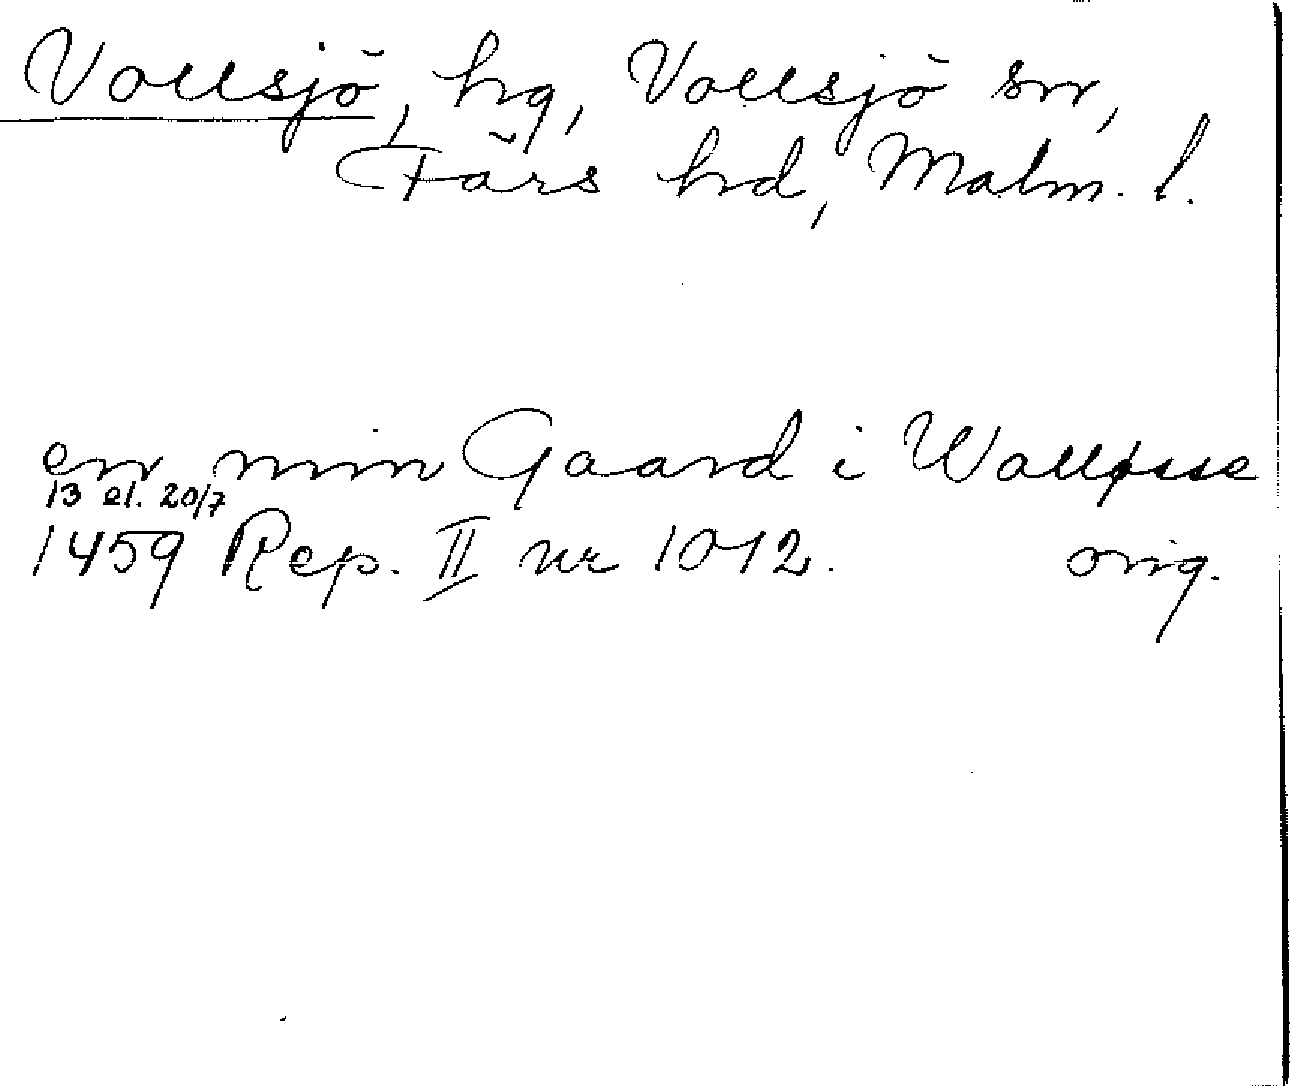 Vollsjö, hg, Vollsjö sn,
Färs hd, Malm. l.
en min Gaard i
13 el. 20/7
1459 Rep. II nr 1012. orig.